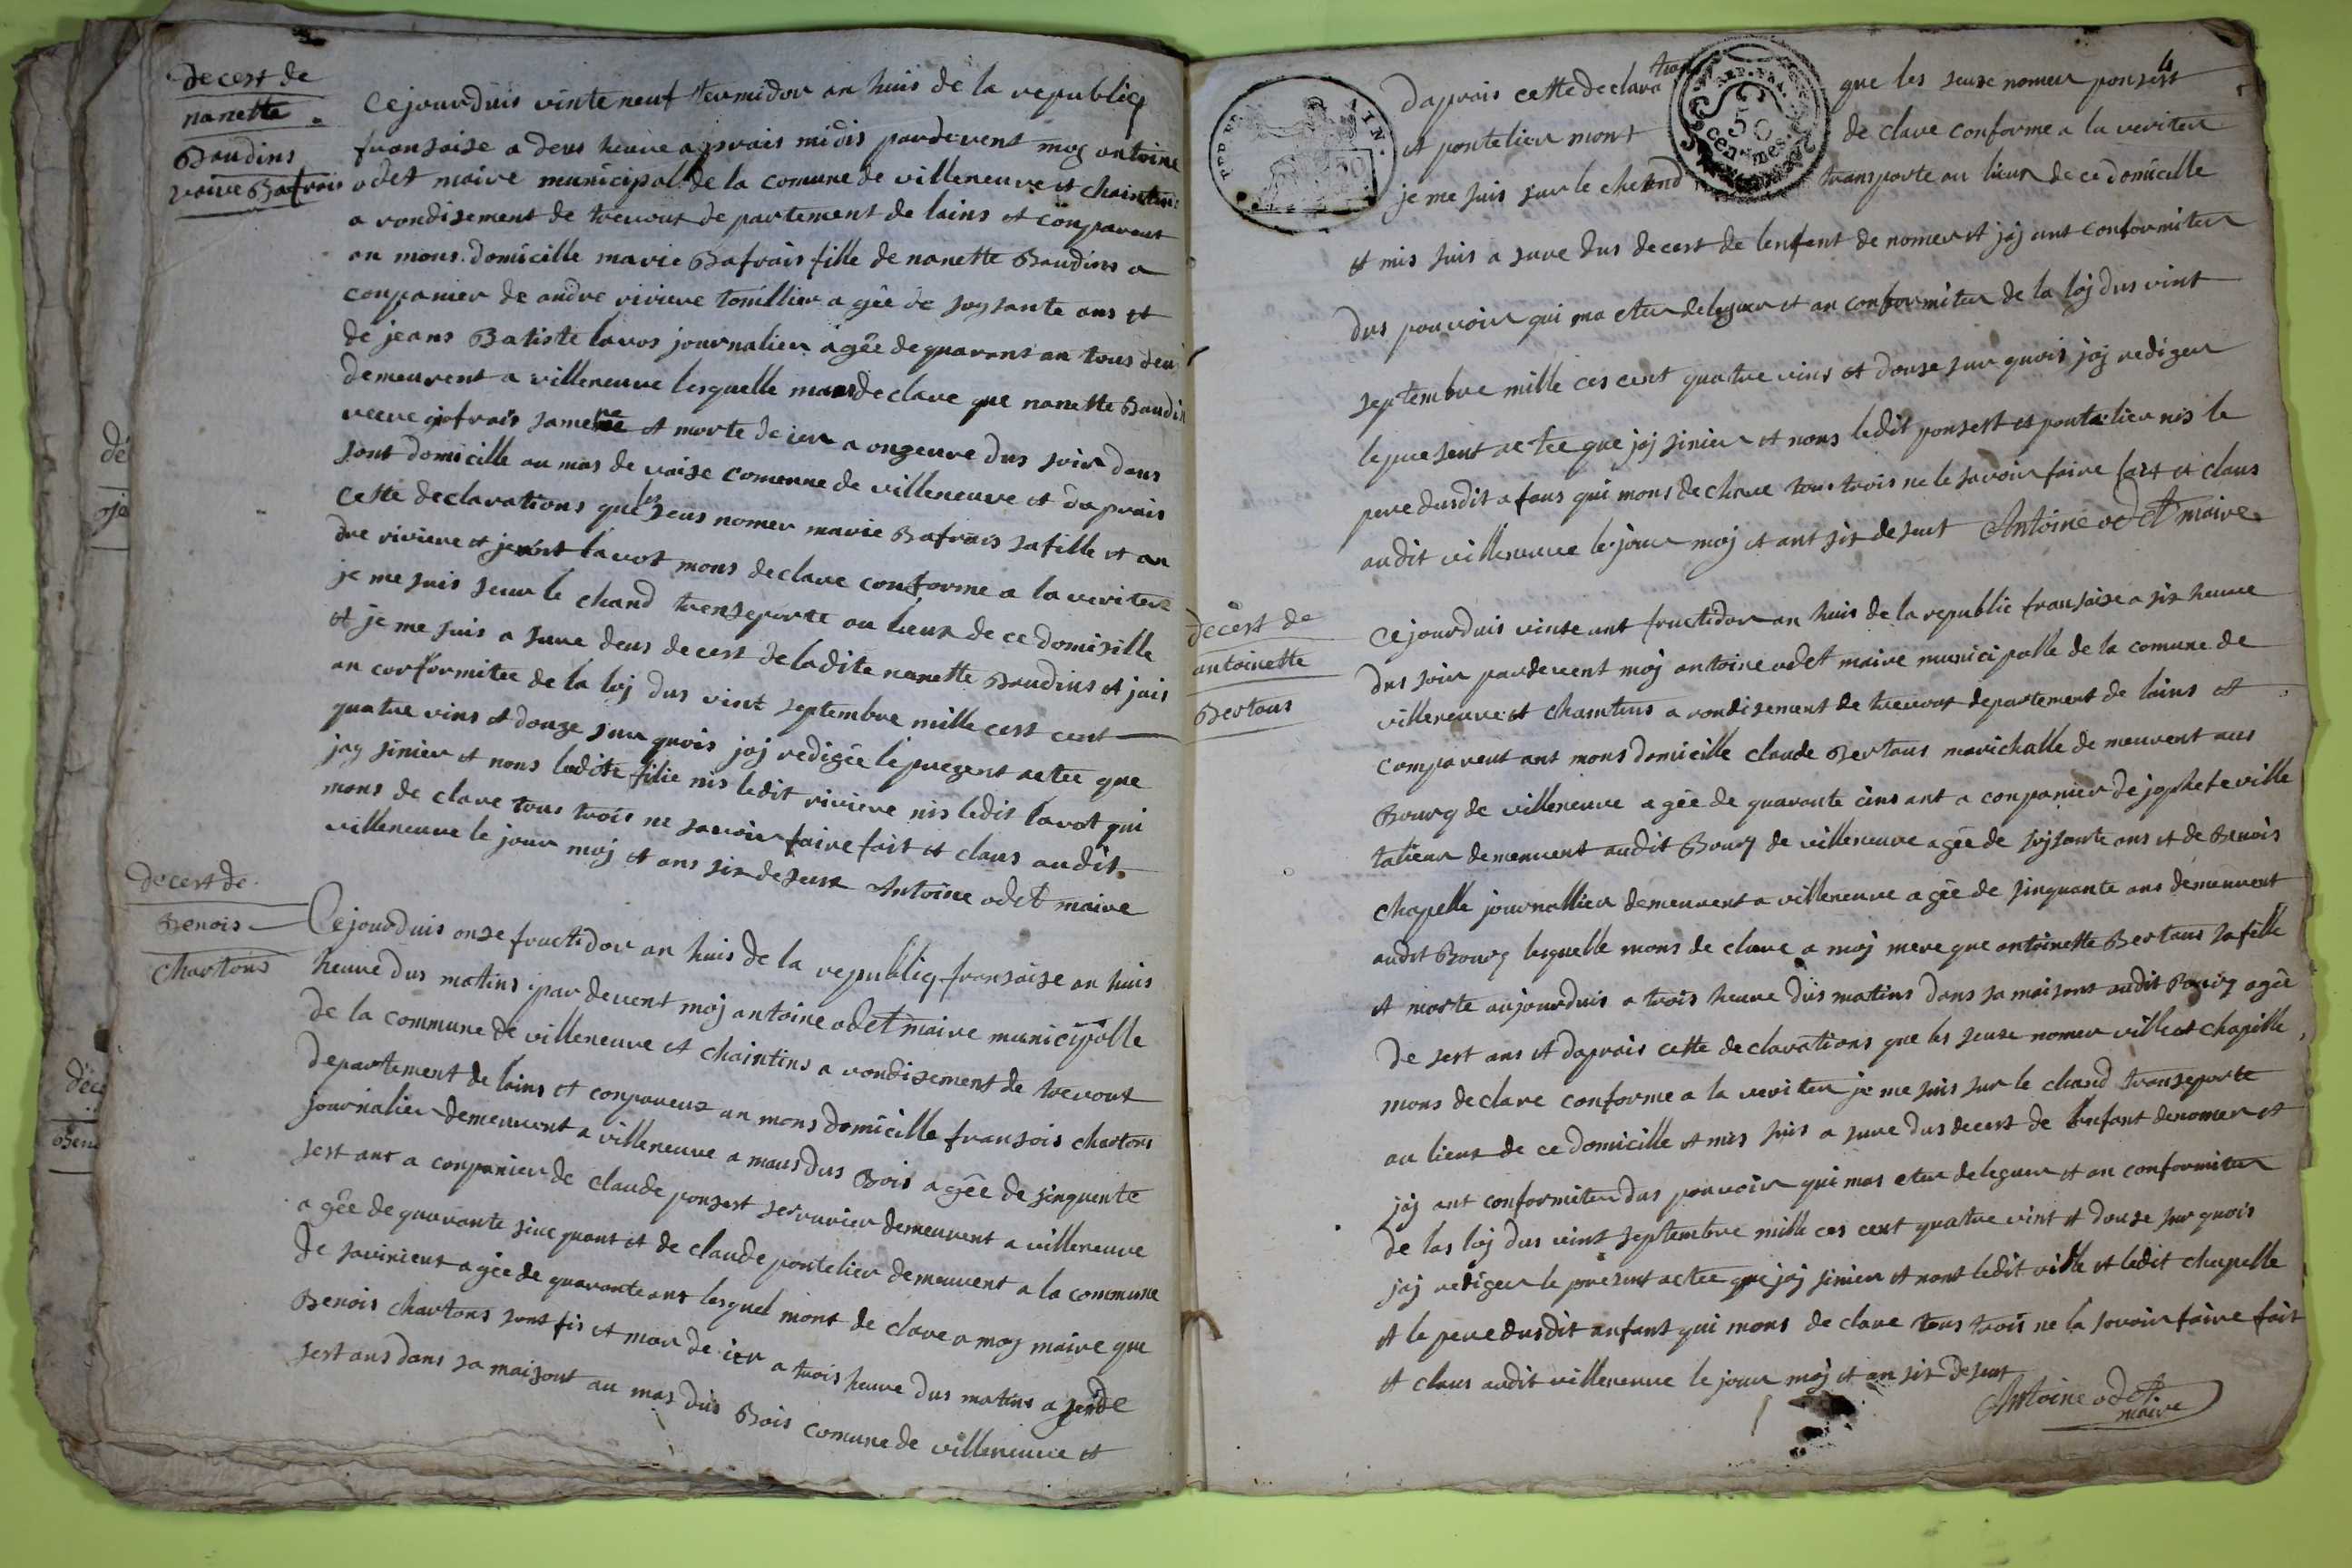 decest de
nanette
Baudins
vaive Bafrais
Cejourduis vinte neuf termidor an huis de la republiq
fransaise a deus heure aprais midis pardevent moy antoine
odet maire municipal de la comune de villeneuve et chaintins
a rondisement de trevout de partement de lains et conparent
an mons domicille marie Bafrais fille de nanette Baudins a
conpanier de andre riviere tonillier a gée de soysante ans et
de jeans Batiste lavos journalier agée de quarant an tous deus
demeurent a villeneuve lesquelle mons declare que nanette Baudin
veuve jofrais samere et morte de ier a onzeure dus soir dans
sont domicille au mas de vaise comenne de villeneuve et daprais
cette declarations que les seus nomer marie Bafrais safille et an
dre riviere et jeanst lavot mons declare conforme a la veriter
je me suis seur le chand trenseporte au lieux de ce domisille
et je me suis a sure deus decest de ladite nanette Baudins et jais
an corformitee de la loj dus vint septembre mille cest cent
quatre vins et douze sur quois joj redigée le prezent actee que
joy sinier et nons ladite filie nis ledit riviere nis ledit lavot qui
mons de clare tous trois ne savoir faire fait et claus audit
villeneuve le jour moj et ans sis deseus Antoine odet maire
decest de
Benois
Chartons
Cejourduis onse fructidor an huis de la republiq fransaise an huis
heure dus matins par devent moj antoine odet maire municipolle
de la commune de villeneuve et chaintins a rondisement de trevout
departement de lains et conpareus an mons domicille fransois chartons
journalier demeurent a villeneuve a maus dus Bois agée de sinquente
sest ant a conpanier de claude ponsest serrurier demeurent a villeneuve
agée de quarante sinc quant et de claude pontelier demeurent a la commune
de savinieus agée de quarante ans lesquel mont de clare a moy maire que
Benois chartons sont fis et mor de ier a trois heure dus matins a gée de
sest ans dans sa maisont au mas dus Bois comune de villeneuve et
4
daprais cette declara tion que les seuse nomer ponsest
et pontelier mont de clare conforme a la veriter
je me suis sur le chand transporte au lieux de ce domicille
et mis suis a sure dus decest de lenfent de nomer et joj ant conformiter
dus pouvoir qui ma eter deleguer et an conformiter de la loj dus vint
septembre mille ces cent quatre vins et douse sur quois joj rediger
le presant actee que joj sinier et nons ledit ponsest et pontelier nis le
pere dusdit afans qui mons de clare tous trois ne le savoir faire fait et claus
audit villeneuve le jour moj et ant sis deseut Antoine odet maire
decest de
antoinette
Bertous
Cejourduis vinte ant fructidor an huis de la republic fransaise a sis heure
dus soir pardevent moj antoine odet maire municipalle de la comune de
villeneuve et chamtins a rondisement de trevout departement de lains et
comparent ant mons domicille claude Bertous marichalle de meurent aus
Bourg de villeneuve agée de quarante cins ant a conpanier de jophete ville
talieur demeurent audit Bourg de villeneuve agée de soysante ans et de Benois
chapelle journallier demeurent a villeneuve agée de sinquante ans demeurent
audit Bourg lesquelle mons de clare a moj mere que antoinette Bertous safille
et morte aujourduis a trois heure dus matins dans sa maisons audit Bourg agée
de sest ans et daprais cette declarations que les seuse nomer ville et chapille
mons declare conforme a la veriter je me suis sur le chand transeporte
au lieus de ce domicille et mis suis a sure dus decest de lenfant denomer et
joj ant conformiter dus pouvoir qui mas eter deleguer et an conformiter
de las loj dus vint septembre mille ces cent quatre vint et douse sur quois
joj rediger le presant actee que joj sinier et nont ledit ville et ledit chapelle
et le pere dusdit anfant qui mons de clare tous trois ne la savoir faire fait
et claus audit villeneuve le jour moj et an sis deseut
Antoine odet
maire